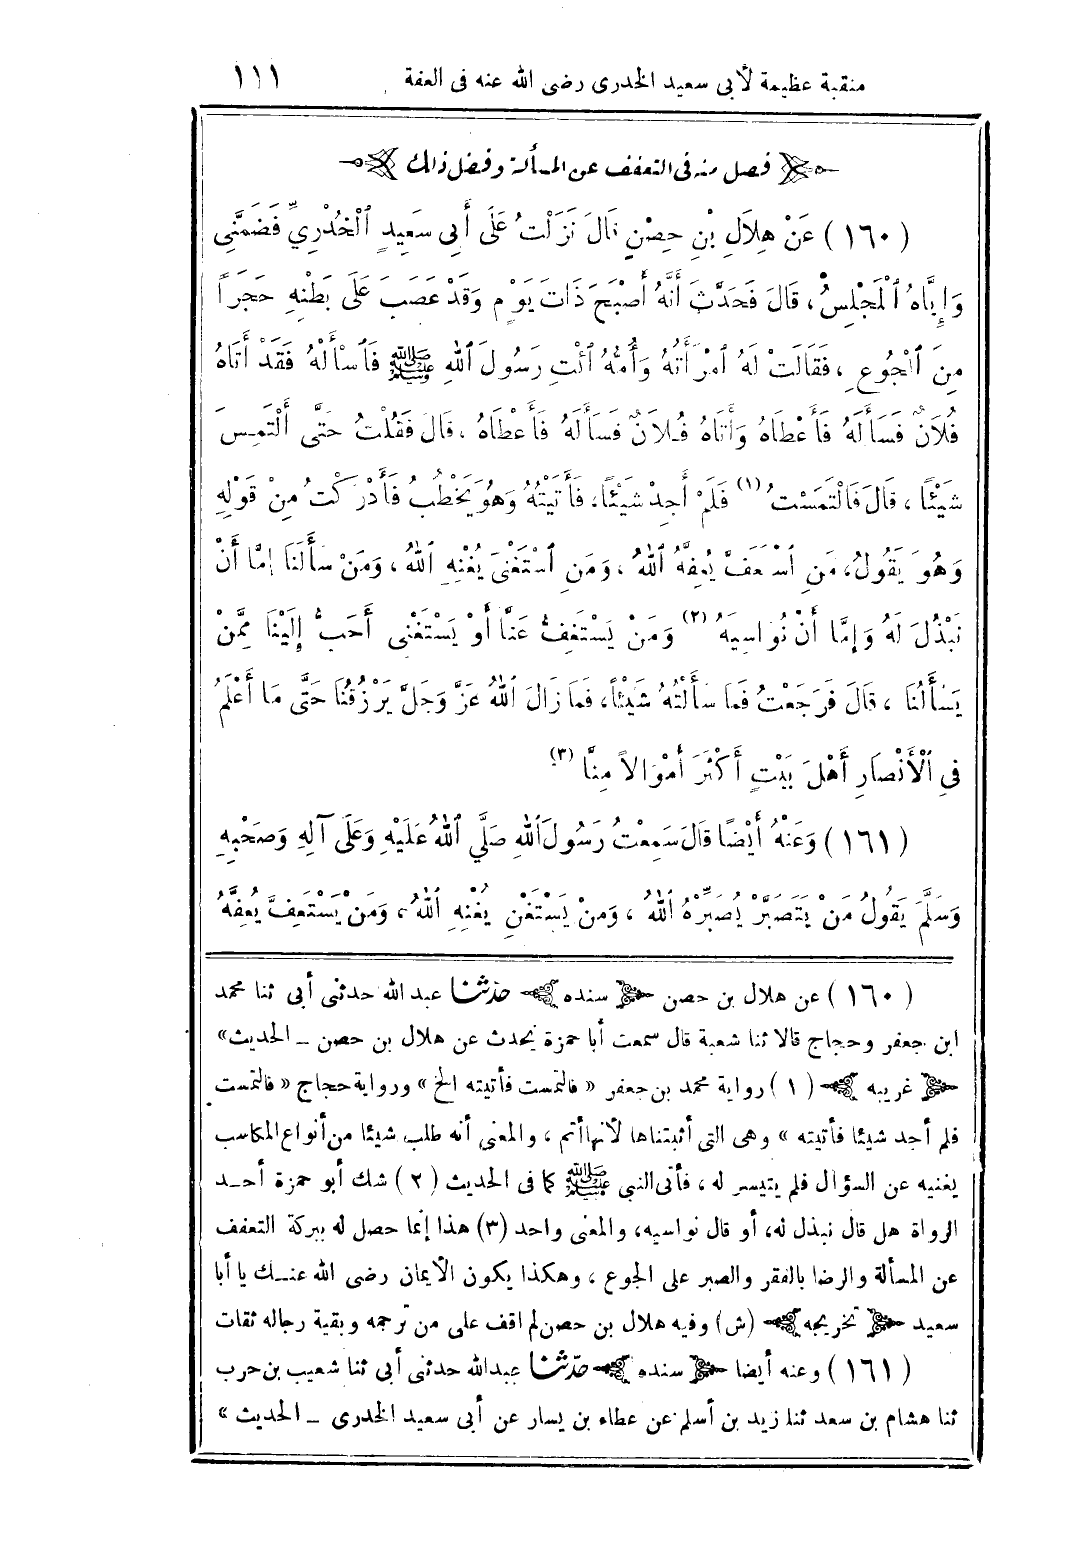 منقبة عظيمة لأبى سعيد الخدرى رضى الله عنه فى العفة ١١١
فصل منه فى التعفف عن المسألة وفضل ذلك
(١٦٠) عَنْ هِلَالِ بْنِ حِصْنٍ قَالَ نَزَلْتُ عَلَى أَبِى سَعِيدٍ الْخُدْرِيِّ فَضَمَّنِى
وَإِيَّاهُ الْمَجْلِسُ، قَالَ فَحَدَّثَ أَنَّهُ أَصْبَحَ ذَاتَ يَوْمٍ وَقَدْ عَصَبَ عَلَى بَطْنِهِ حَجَرًا
مِنَ الْجُوعِ، فَقَالَتْ لَهُ امْرَأَتُهُ وَأُمُّهُ ائْتِ رَسُولَ اللهِ ﷺ فَاسْأَلْهُ فَقَدْ أَتَاهُ
فُلَانٌ فَسَأَلَهُ فَأَعْطَاهُ وَأَتَاهُ فُلَانٌ فَسَأَلَهُ فَأَعْطَاهُ، قَالَ فَقُلْتُ حَتَّى أَلْتَمِسَ
شَيْئًا، قَالَ فَالْتَمَسْتُ (١) فَلَمْ أَجِدْ شَيْئًا، فَأَتَيْتُهُ وَهُوَ يَخْطُبُ فَأَدْرَكْتُ مِنْ قَوْلِهِ
وَهُوَ يَقُولُ، مَنِ اسْتَعَفَّ يُعِفَّهُ اللهُ، وَمَنِ اسْتَغْنَى يُغْنِهِ اللهُ، وَمَنْ سَأَلَنَا إِمَّا أَنْ
نَبْذُلَ لَهُ وَإِمَّا أَنْ نُوَاسِيَهُ (٢) وَمَنْ يَسْتَعِفُّ عَنَّا أَوْ يَسْتَغْنِى أَحَبُّ إِلَيْنَا مِمَّنْ
يَسْأَلُنَا، قَالَ فَرَجَعْتُ فَمَا سَأَلْتُهُ شَيْئًا، فَمَا زَالَ اللهُ عَزَّ وَجَلَّ يَرْزُقُنَا حَتَّى مَا أَعْلَمُ
فِى الْأَنْصَارِ أَهْلَ بَيْتٍ أَكْثَرَ أَمْوَالًا مِنَّا (٣)
(١٦١) وَعَنْهُ أَيْضًا قَالَ سَمِعْتُ رَسُولَ اللهِ صَلَّى اللهُ عَلَيْهِ وَعَلَى آلِهِ وَصَحْبِهِ
وَسَلَّمَ يَقُولُ مَنْ يَتَصَبَّرْ يُصَبِّرْهُ اللهُ، وَمَنْ يَسْتَغْنِ يُغْنِهِ اللهُ، وَمَنْ يَسْتَعِفَّ يُعِفَّهُ
(١٦٠) عن هلال بن حصن سنده حدثنا عبد الله حدثنى أبى ثنا محمد
ابن جعفر وحجاج قالا ثنا شعبة قال سمعت أبا حمزة يحدث عن هلال بن حصن ــ الحديث»
غريبه (١) رواية محمد بن جعفر «فالتمست فأتيته الخ» ورواية حجاج «فالتمست
فلم أجد شيئا فأتيته» وهى التى أثبتناها لأنها أتم، والمعنى أنه طلب شيئا من أنواع المكاسب
يغنيه عن السؤال فلم يتيسر له، فأتى النبى ﷺ كما فى الحديث (٢) شك أبو حمزة أحد
الرواة هل قال نبذل له، أو قال نواسيه، والمعنى واحد (٣) هذا إنما حصل له ببركة التعفف
عن المسألة والرضا بالفقر والصبر على الجوع، وهكذا يكون الأيمان رضى الله عنك يا أبا
سعيد تخريجه (ش) وفيه هلال بن حصن لم اقف على من ترجمه وبقية رجاله ثقات
(١٦١) وعنه أيضا سنده حدثنا عبد الله حدثنى أبى ثنا شعيب بن حرب
ثنا هشام بن سعد ثنا زيد بن أسلم عن عطاء بن يسار عن أبى سعيد الخدرى ــ الحديث»